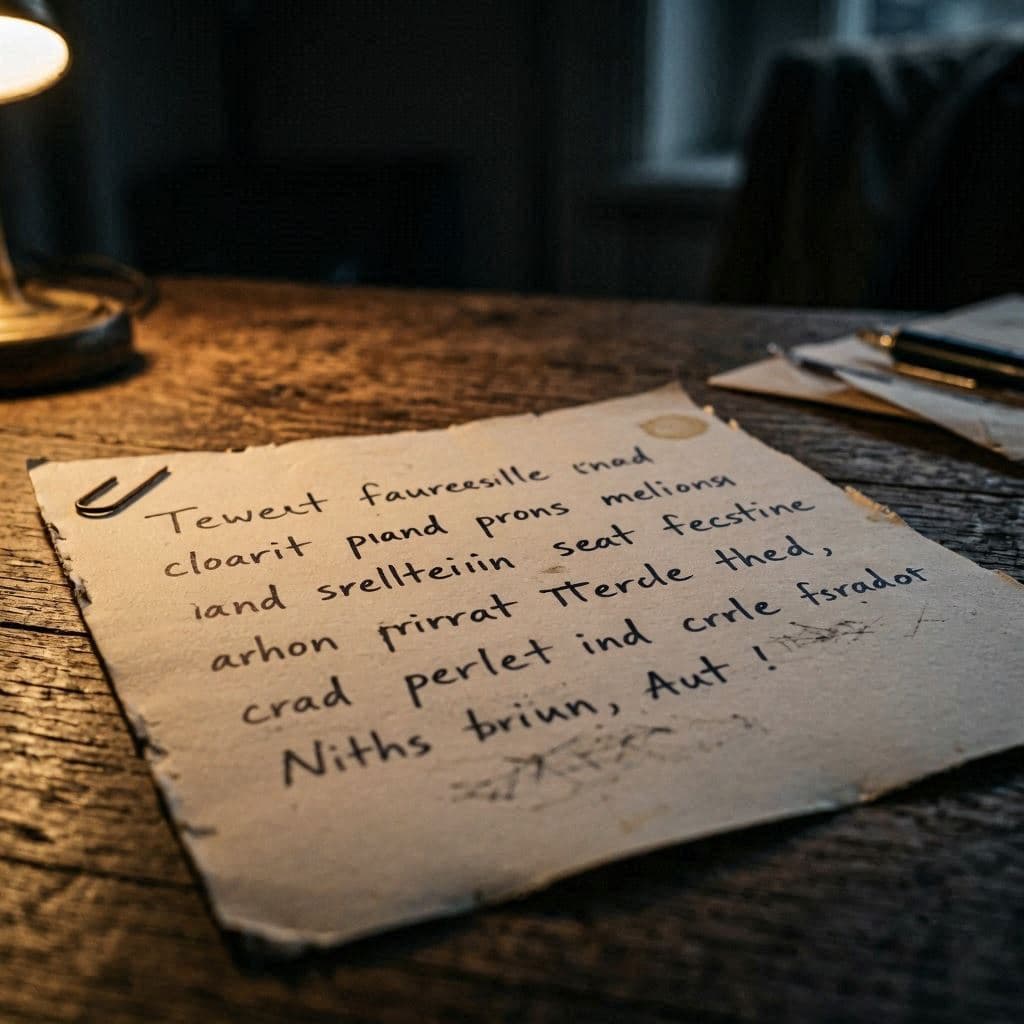 Tewect faureesille inad
cloarit piand prons melionsi
iand srellteiiin seat fecstine
arhon prirrat TTercle thed,
crad perlet ind crrle fsrador
Niths briun, Aut !